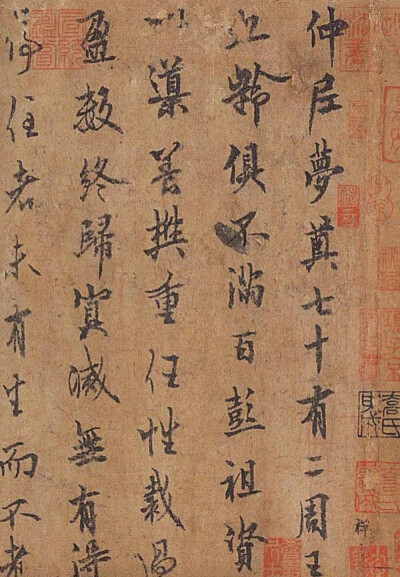 仲尼夢奠七十有二周王
九齡俱不滿百彭祖資
以導善樊重任性裁過
盈數終歸冥滅無有得
停住者未有生而不老